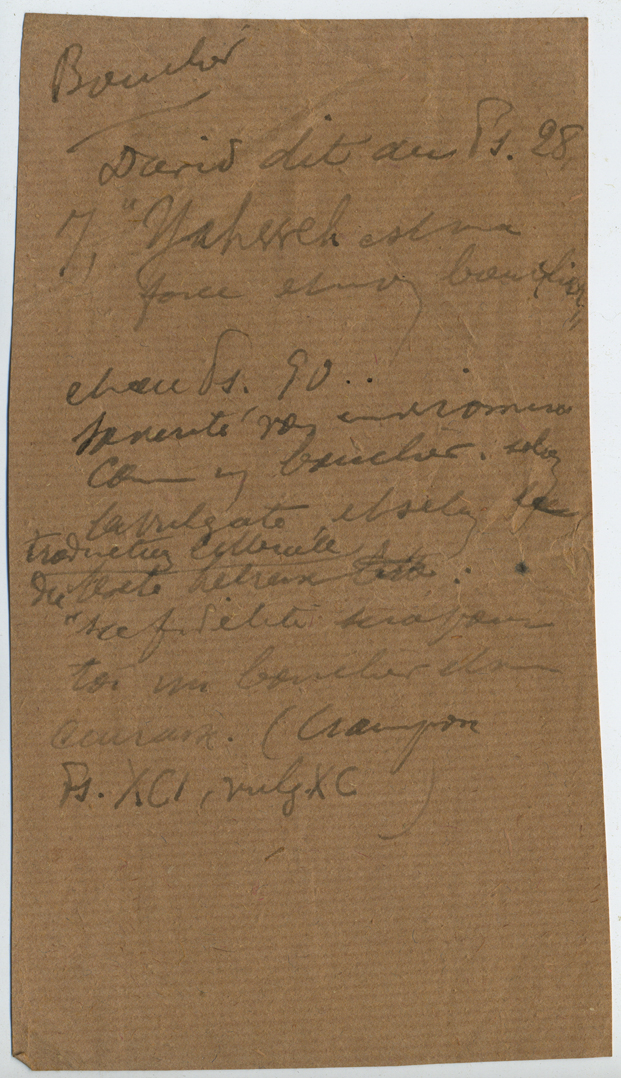 Bouclier
David dit au Ps. 28,
7, "Yahweh est ma
force et mon bouclier"
et au Ps. 90..
sa verité vous environnera
com un bouclier. selon
la vulgate, et selon la
traduction littérale
du texte hebreux :
"sa fidélité sera pour
toi un bouclier et une
cuirasse. (Crampon
Ps. XCI, vulg. XC )